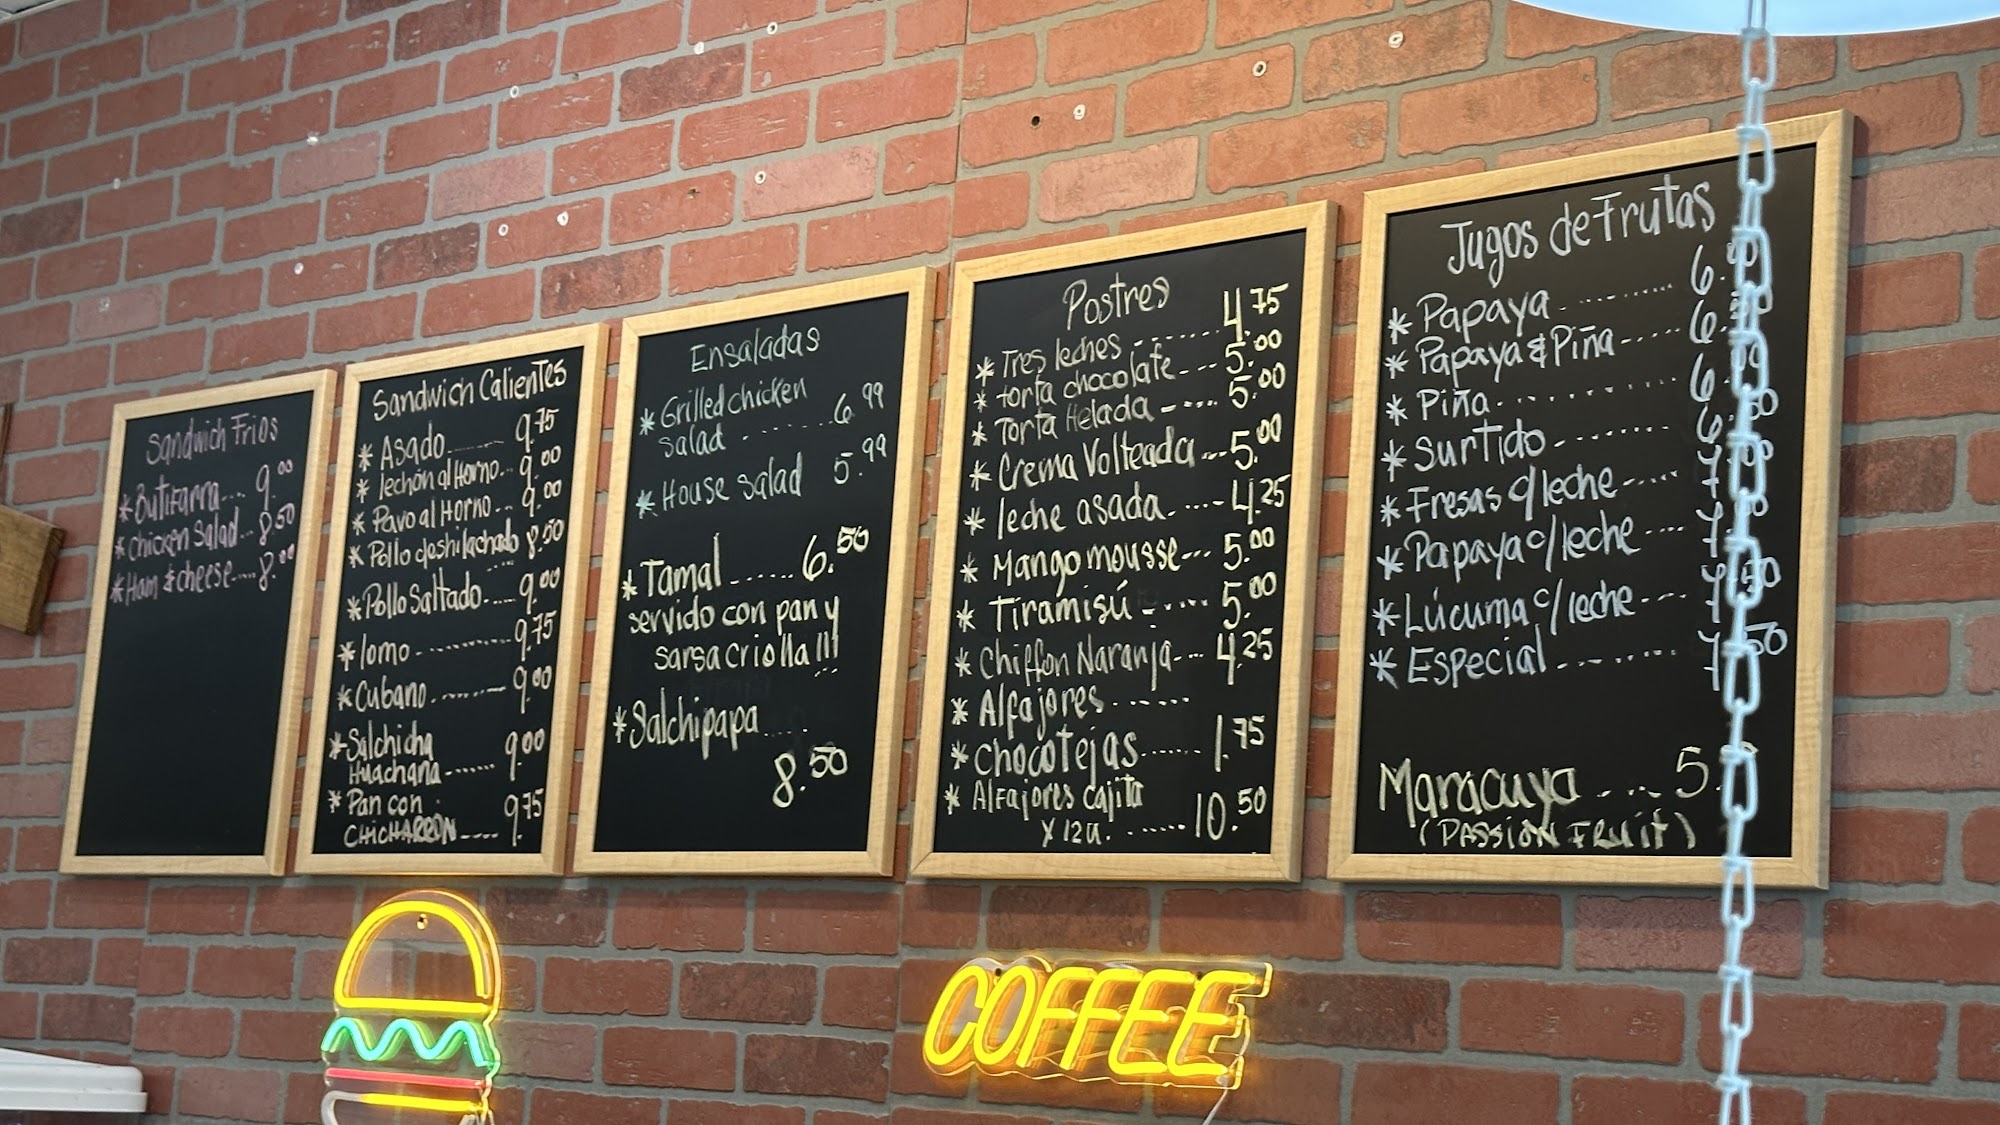 Sandwich Frios
* Butifarra... 9.00
* Chicken Salad.. 8.50
* Ham & cheese.... 8.00
Sandwich Calientes
* Asado........ 9.75
* lechón al Horno... 9.00
* Pavo al Horno... 9.00
* Pollo deshilachado 8.50
* Pollo Saltado..... 9.00
* lomo......... 9.75
* Cubano......... 9.00
* Salchicha
Huachana...... 9.00
* Pan con
CHICHARRON.... 9.75
Ensaladas
* Grilled chicken
salad ........ 6.99
* House salad 5.99
* Tamal ...... 6.50
servido con pan y
sarsa criolla!!!
* Salchipapa....
8.50
Postres
* Tres leches ....... 4.75
* torta chocolate... 5.00
* Torta Helada .... 5.00
* Crema Volteada... 5.00
* leche asada..... 4.25
* Mango mousse... 5.00
* Tiramisú ...... 5.00
* Chiffon Naranja... 4.25
* Alfajores......
* Chocotejas...... 1.75
* Alfajores cajita
x 12u. ...... 10.50
Jugos de Frutas
* Papaya ......... 6.
* Papaya & Piña.... 6.
* Piña......... 6.
* Surtido ........ 6.50
* Fresas c/leche .... 7.
* Papaya c/leche .... 7.
* Lúcuma c/leche .... 7.50
* Especial ........ 7.50
Maracuya .... 5.
(PASSION FRUIT)
COFFEE